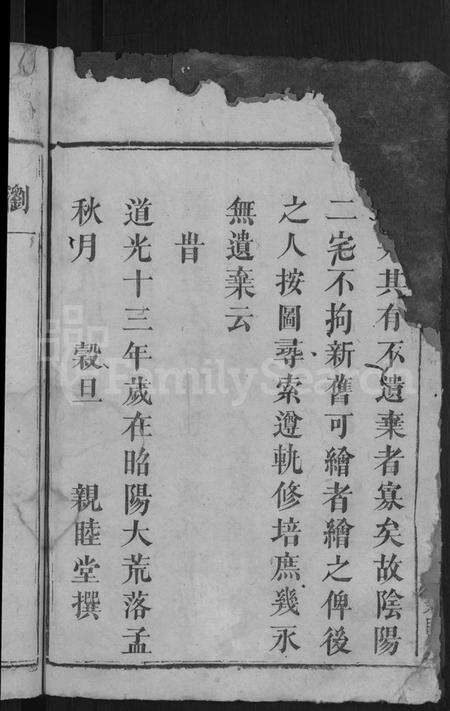 其有不遺棄者寡矣故陰陽
二宅不拘新舊可繪者繪之俾後
之人按圖尋索遵軌修培庶幾永
無遺棄云
旹
道光十三年歲在昭陽大荒落孟
秋月 穀旦 親睦堂撰
劉
FamilySearch